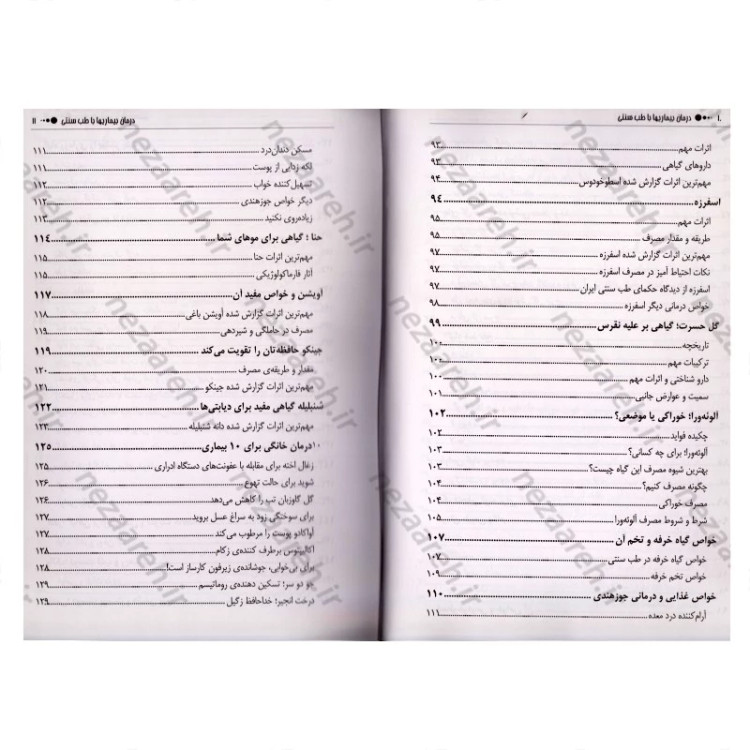 ۱۰ درمان بیماریها با طب سنتی
اثرات مهم ۹۳
داروهای گیاهی ۹۳
مهم‌ترین اثرات گزارش شده اسطوخودوس ۹۴
اسفرزه ۹۴
اثرات مهم ۹۵
طریقه و مقدار مصرف ۹۵
مهم‌ترین اثرات گزارش شده اسفرزه ۹۷
نکات احتیاط آمیز در مصرف اسفرزه ۹۷
اسفرزه از دیدگاه حکمای طب سنتی ایران ۹۷
خواص درمانی دیگر اسفرزه ۹۸
گل حسرت؛ گیاهی بر علیه نقرس ۹۹
تاریخچه ۱۰۰
ترکیبات مهم ۱۰۰
دارو شناختی و اثرات مهم ۱۰۰
سمیت و عوارض جانبی ۱۰۱
آلوئه‌ورا؛ خوراکی یا موضعی؟ ۱۰۲
چکیده فواید ۱۰۲
آلوئه‌ورا؛ برای چه کسانی؟ ۱۰۳
بهترین شیوه مصرف این گیاه چیست؟ ۱۰۳
چگونه مصرف کنیم؟ ۱۰۴
مصرف خوراکی ۱۰۴
شرط و شروط مصرف آلوئه‌ورا ۱۰۵
خواص گیاه خرفه و تخم آن ۱۰۷
خواص گیاه خرفه در طب سنتی ۱۰۷
خواص تخم خرفه ۱۰۹
خواص غذایی و درمانی جوزهندی ۱۱۰
آرام‌کننده درد معده ۱۱۱
درمان بیماریها با طب سنتی ۱۱
مسکن دندان‌درد ۱۱۱
لکه زدایی از پوست ۱۱۱
تسهیل‌کننده خواب ۱۱۲
دیگر خواص جوزهندی ۱۱۲
زیاده‌روی نکنید ۱۱۳
حنا ؛ گیاهی برای موهای شما ۱۱۴
مهم‌ترین اثرات حنا ۱۱۵
آثار فارماکولوژیکی ۱۱۵
آویشن و خواص مفید آن ۱۱۷
مهم‌ترین اثرات گزارش شده آویشن باغی ۱۱۸
مصرف در حاملگی و شیردهی ۱۱۸
جینکو حافظه‌تان را تقویت می‌کند ۱۱۹
مقدار و طریقه‌ی مصرف ۱۲۰
مهم‌ترین اثرات گزارش شده جینکو ۱۲۱
شنبلیله گیاهی مفید برای دیابتی‌ها ۱۲۲
مهم‌ترین اثرات گزارش شده دانه شنبلیله ۱۲۳
۱۰درمان خانگی برای ۱۰ بیماری ۱۲۵
زغال اخته برای مقابله با عفونت‌های دستگاه ادراری ۱۲۵
شوید برای حالت تهوع ۱۲۶
گل گاوزبان تب را کاهش می‌دهد ۱۲۶
برای سوختگی زود به سراغ عسل بروید ۱۲۷
آواکادو پوست را مرطوب می‌کند ۱۲۷
اکالیپتوس برطرف کننده‌ی زکام ۱۲۸
برای بی‌خوابی، جوشانده‌ی زیرفون کارساز است! ۱۲۸
جو دو سر؛ تسکین دهنده‌ی روماتیسم ۱۲۹
درخت انجیر؛ خداحافظ زگیل ۱۲۹
nezaareh.ir